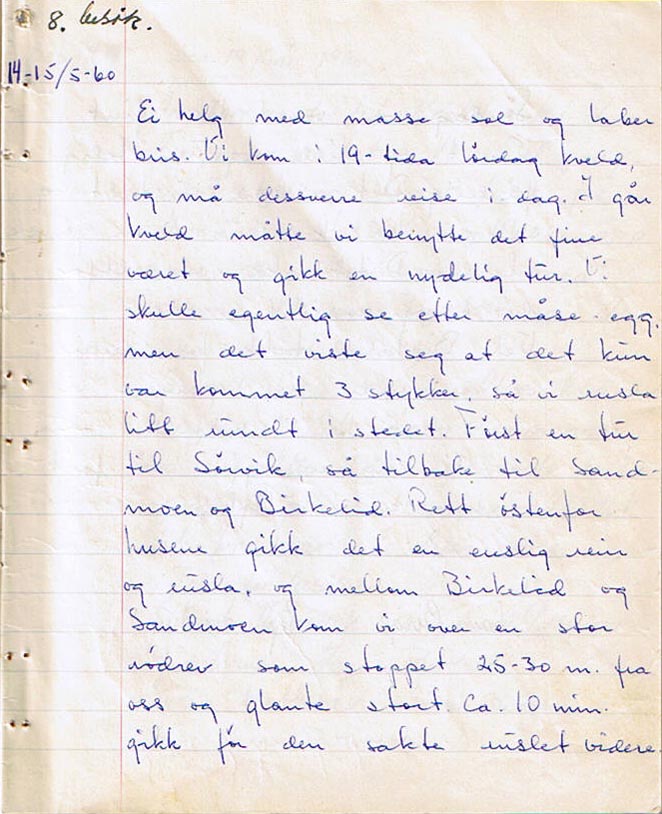 8. besök.
14-15/5-60
Ei helg med masse sol og laber
bris. Vi kom i 19-tida lördag kveld,
og må dessverre reise i dag. I går
kveld måtte vi benytte det fine
været og gikk en nydelig tur. Vi
skulle egentlig se etter måse-egg,
men det viste seg at det kun
var kommet 3 stykker, så vi rusla
litt rundt i stedet. Först en tur
til Sörvik, så tilbake til Sand-
moen og Birkelid. Rett östenfor
husene gikk det en enslig rein
og rusla, og mellom Birkelid og
Sandmoen kom vi over en stor
rödrev som stoppet 25-30 m. fra
oss og glante stort. Ca. 10 min.
gikk för den sakte ruslet videre.